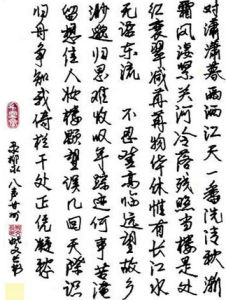 对潇潇暮雨洒江天一番洗清秋渐
霜风凄紧关河冷落残照当楼是处
红衰翠减苒苒物华休惟有长江水
无语东流 不忍登高临远望故乡
渺邈归思难收叹年来踪迹何事苦淹
留想佳人妆楼颙望误几回天际识
归舟争知我倚栏干处正恁凝愁
录柳永八声甘州